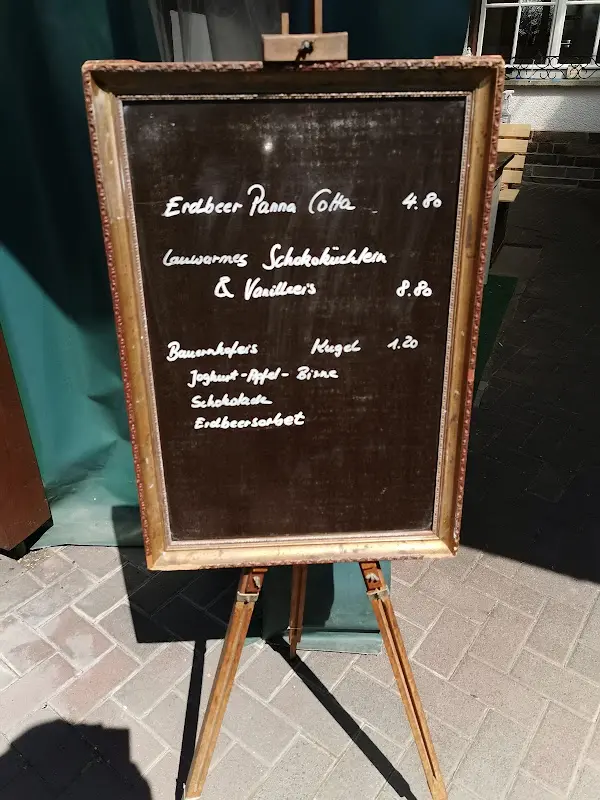 Erdbeer Panna Cotta 4.80
Lauwarmes Schokoküchlein
& Vanilleeis 8.80
Bauernhofeis Kugel 1.20
Joghurt-Apfel-Birne
Schokolade
Erdbeersorbet